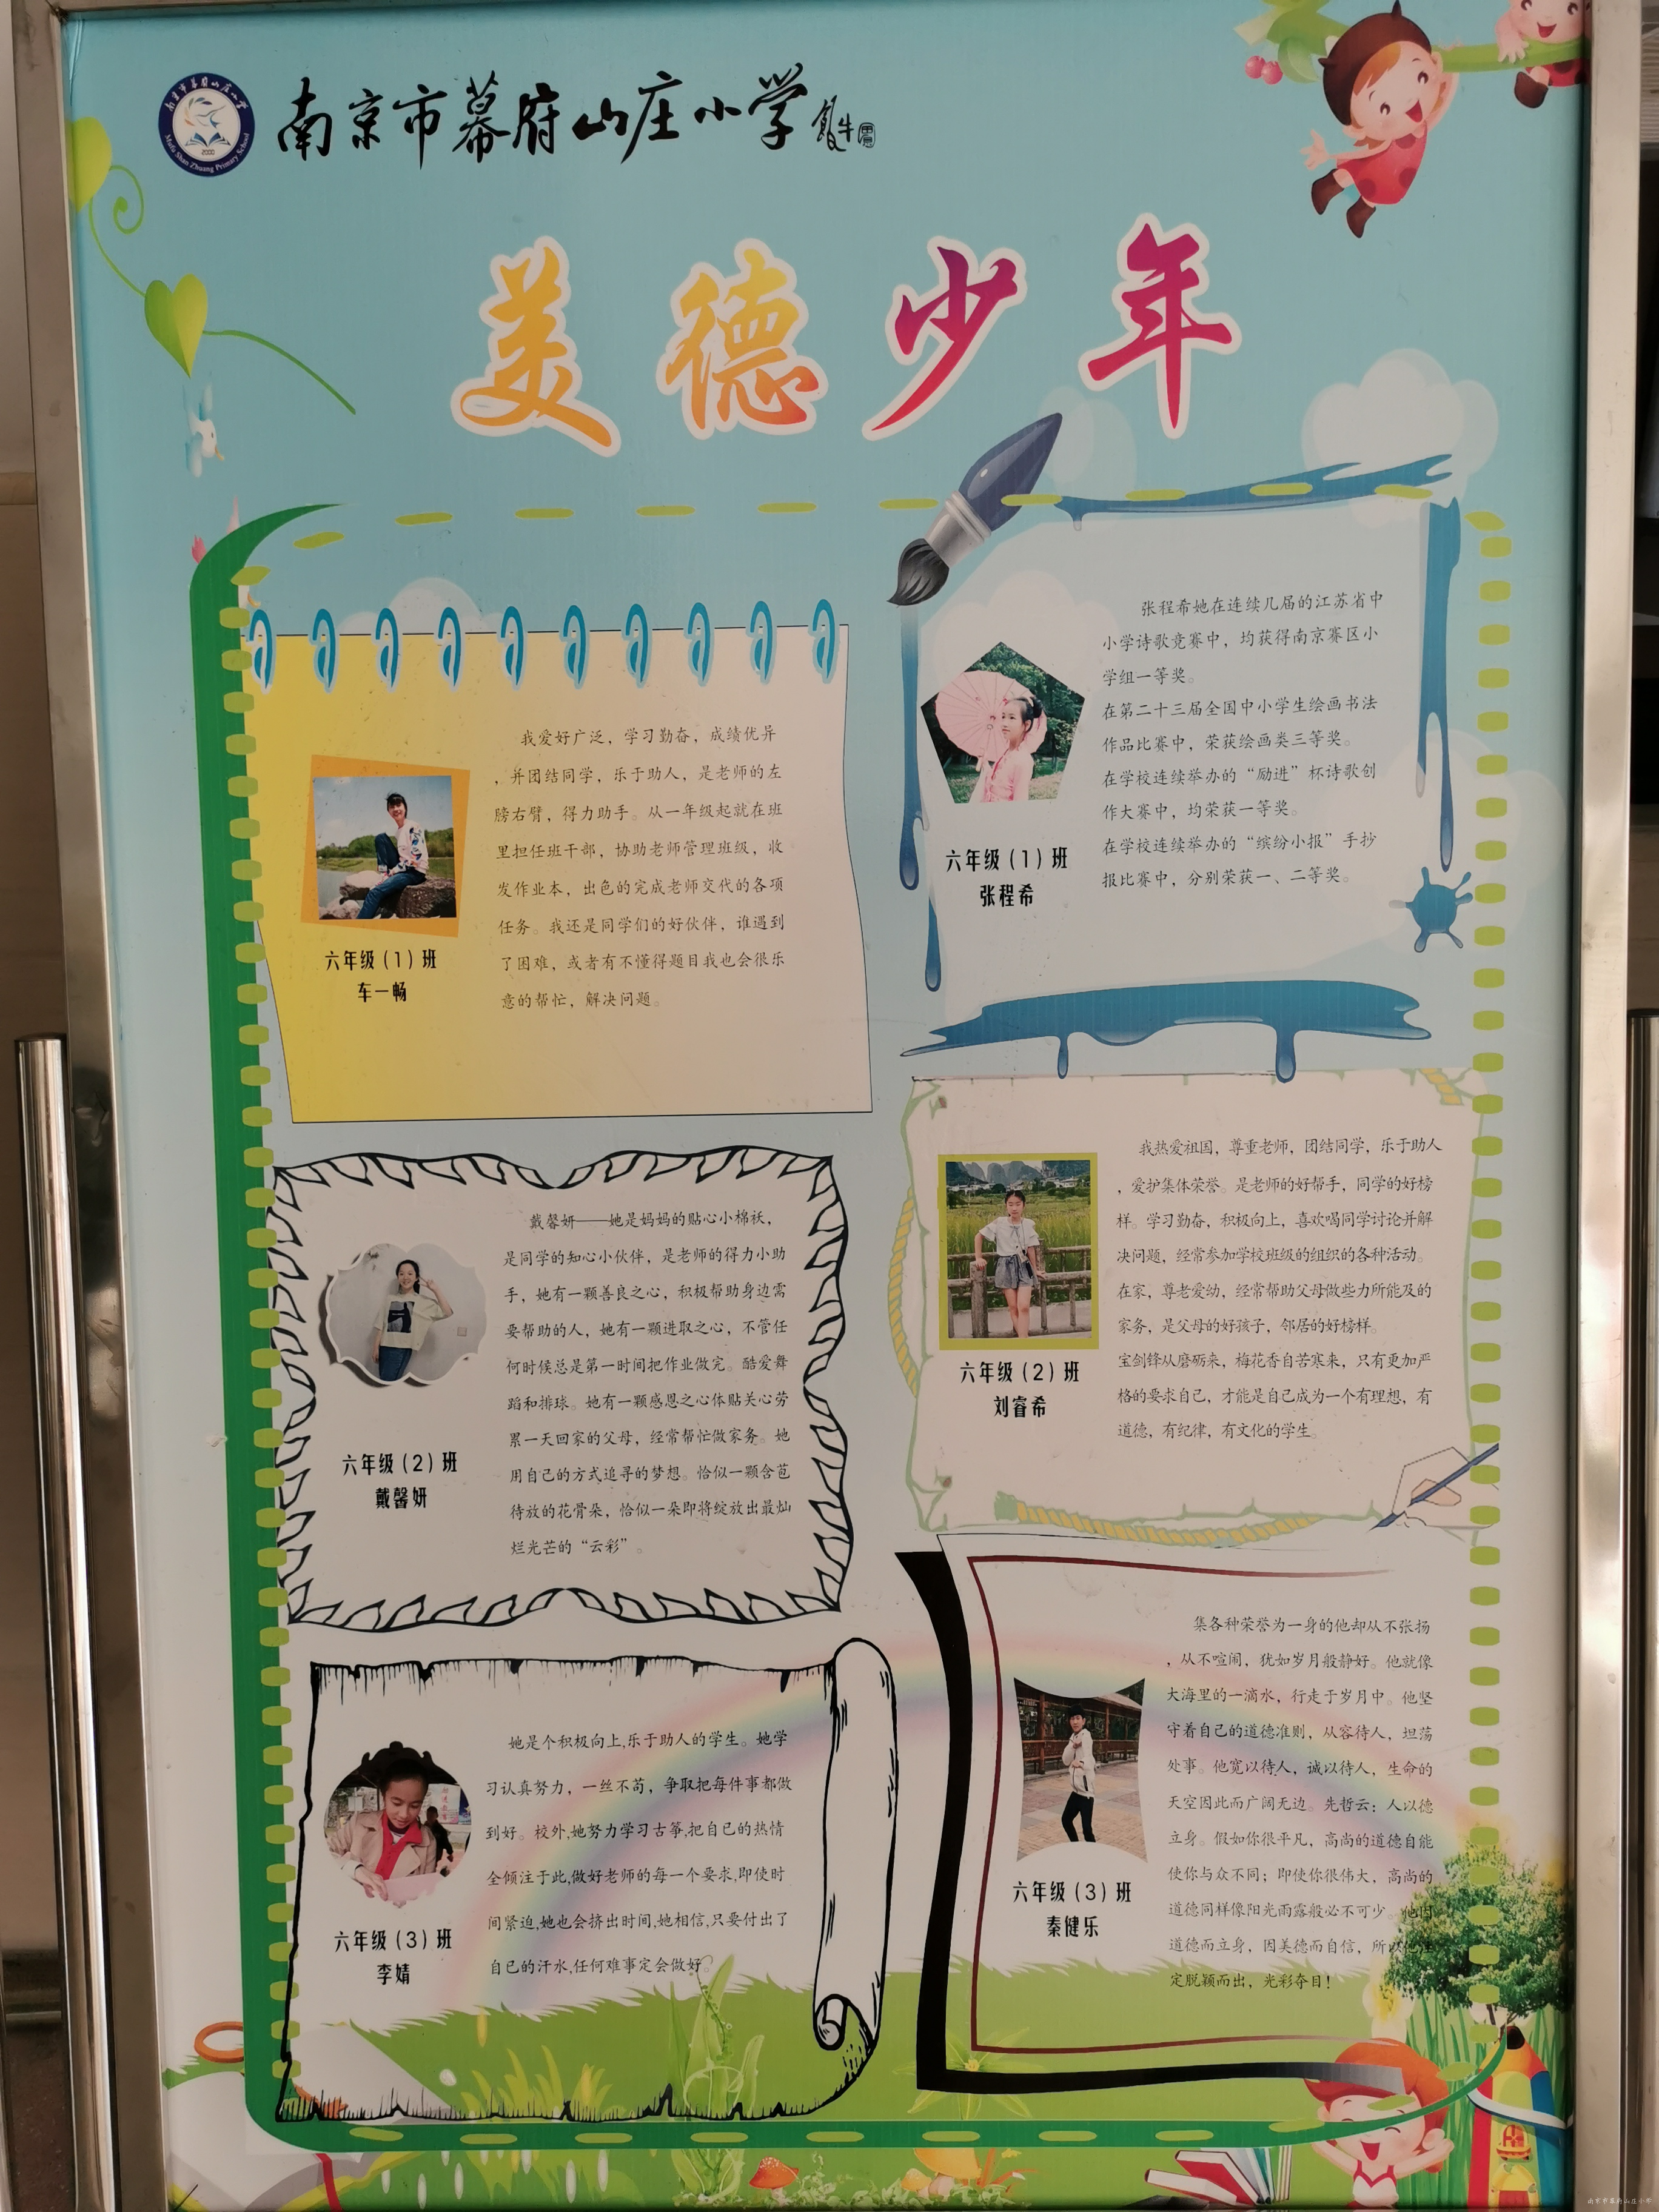 南京市幕府山庄小学
Mufu Shan Zhuang Primary School
2000
美德少年
我爱好广泛，学习勤奋，成绩优异
，并团结同学，乐于助人，是老师的左
膀右臂，得力助手。从一年级起就在班
里担任班干部，协助老师管理班级，收
发作业本，出色的完成老师交代的各项
任务。我还是同学们的好伙伴，谁遇到
了困难，或者有不懂得题目我也会很乐
意的帮忙，解决问题。
六年级（1）班
车一畅
张程希她在连续几届的江苏省中
小学诗歌竞赛中，均获得南京赛区小
学组一等奖。
在第二十三届全国中小学生绘画书法
作品比赛中，荣获绘画类三等奖。
在学校连续举办的“励进”杯诗歌创
作大赛中，均荣获一等奖。
在学校连续举办的“缤纷小报”手抄
报比赛中，分别荣获一、二等奖。
六年级（1）班
张程希
戴馨妍——她是妈妈的贴心小棉袄，
是同学的知心小伙伴，是老师的得力小助
手，她有一颗善良之心，积极帮助身边需
要帮助的人，她有一颗进取之心，不管任
何时候总是第一时间把作业做完。酷爱舞
蹈和排球。她有一颗感恩之心体贴关心劳
累一天回家的父母，经常帮忙做家务。她
用自己的方式追寻的梦想。恰似一颗含苞
待放的花骨朵，恰似一朵即将绽放出最灿
烂光芒的“云彩”。
六年级（2）班
戴馨妍
我热爱祖国，尊重老师，团结同学，乐于助人
，爱护集体荣誉。是老师的好帮手，同学的好榜
样。学习勤奋，积极向上，喜欢喝同学讨论并解
决问题，经常参加学校班级的组织的各种活动。
在家，尊老爱幼，经常帮助父母做些力所能及的
家务，是父母的好孩子，邻居的好榜样。
宝剑锋从磨砺来，梅花香自苦寒来，只有更加严
格的要求自己，才能是自己成为一个有理想，有
道德，有纪律，有文化的学生。
六年级（2）班
刘睿希
她是个积极向上,乐于助人的学生。她学
习认真努力，一丝不苟，争取把每件事都做
到好。校外,她努力学习古筝,把自己的热情
全倾注于此,做好老师的每一个要求,即使时
间紧迫,她也会挤出时间,她相信,只要付出了
自已的汗水,任何难事定会做好。
六年级（3）班
李婧
集各种荣誉为一身的他却从不张扬
，从不喧闹，犹如岁月般静好。他就像
大海里的一滴水，行走于岁月中。他坚
守着自己的道德准则，从容待人，坦荡
处事。他宽以待人，诚以待人，生命的
天空因此而广阔无边。先哲云：人以德
立身。假如你很平凡，高尚的道德自能
使你与众不同；即使你很伟大，高尚的
道德同样像阳光雨露般必不可少。他因
道德而立身，因美德而自信，所以他注
定脱颖而出，光彩夺目！
六年级（3）班
秦健乐
南京市幕府山庄小学